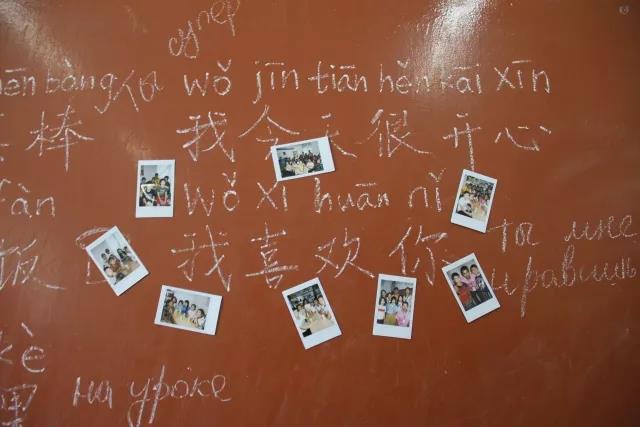 супер
hěn bàng wǒ jīn tiān hěn kāi xīn
棒 我今天很开心
fàn wǒ xǐ huān nǐ
饭 我喜欢你 ты мне
нравишь
kè
на уроке